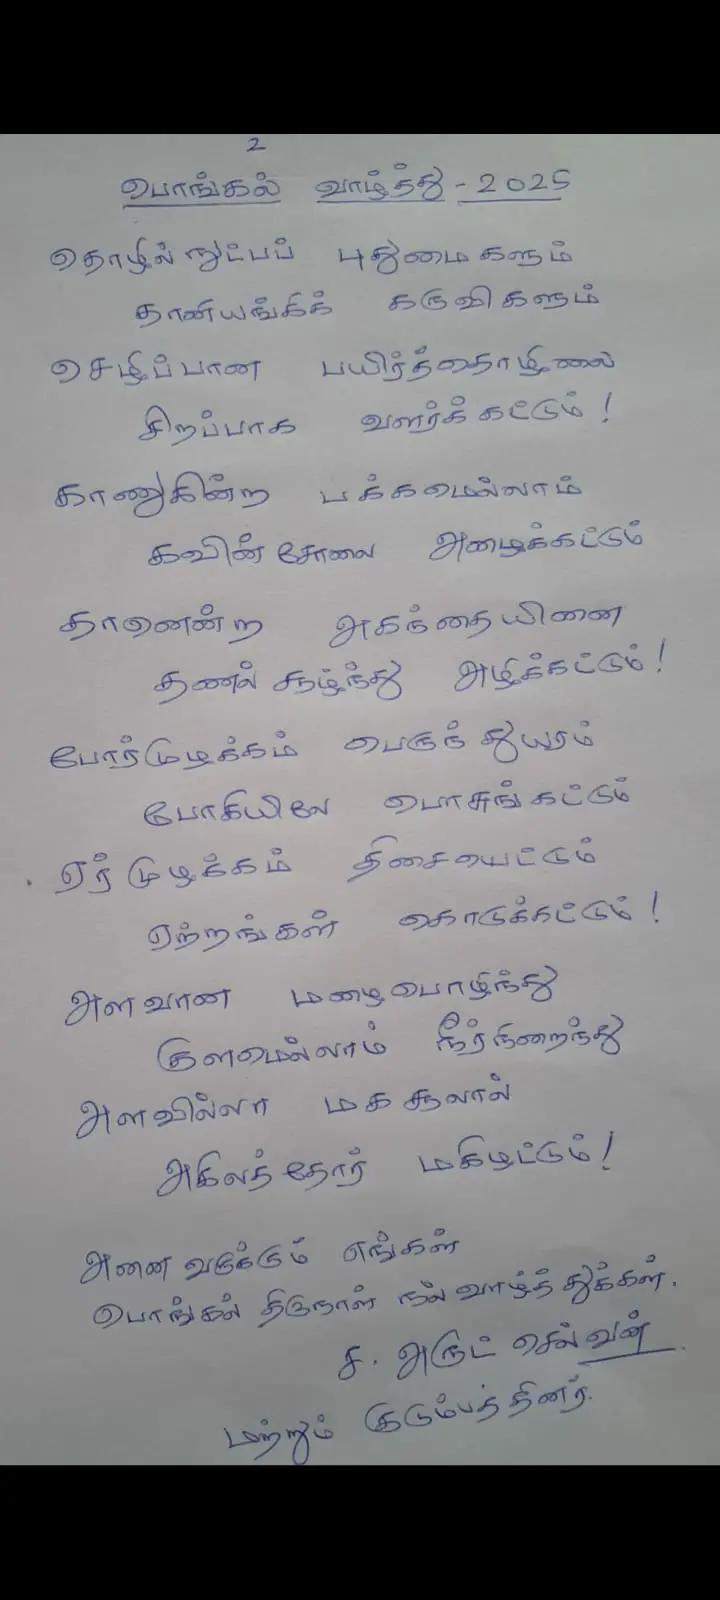 2
பொங்கல் வாழ்த்து - 2025
தொழில் நுட்பப் புதுமைகளும்
தானியங்கிக் கருவிகளும்
செழிப்பான பயிர்த்தொழிலை
சிறப்பாக வளர்க்கட்டும்!
காணுகின்ற பக்கமெல்லாம்
கவின்சோலை அழைக்கட்டும்
தானென்ற அகந்தையினை
தணல் சூழ்ந்து அழிக்கட்டும்!
போர்முழக்கம் பெருந்துயரம்
போகியிலே பொசுங்கட்டும்
ஏர்முழக்கம் திசையெட்டும்
ஏற்றங்கள் கொடுக்கட்டும்!
அளவான மழைபொழிந்து
குளமெல்லாம் நீர்நிறைந்து
அளவில்லா மகசூலால்
அகிலத்தோர் மகிழட்டும்!
அனைவருக்கும் எங்கள்
பொங்கல் திருநாள் நல்வாழ்த்துக்கள்.
ச. அருட் செல்வன்
மற்றும் குடும்பத்தினர்.